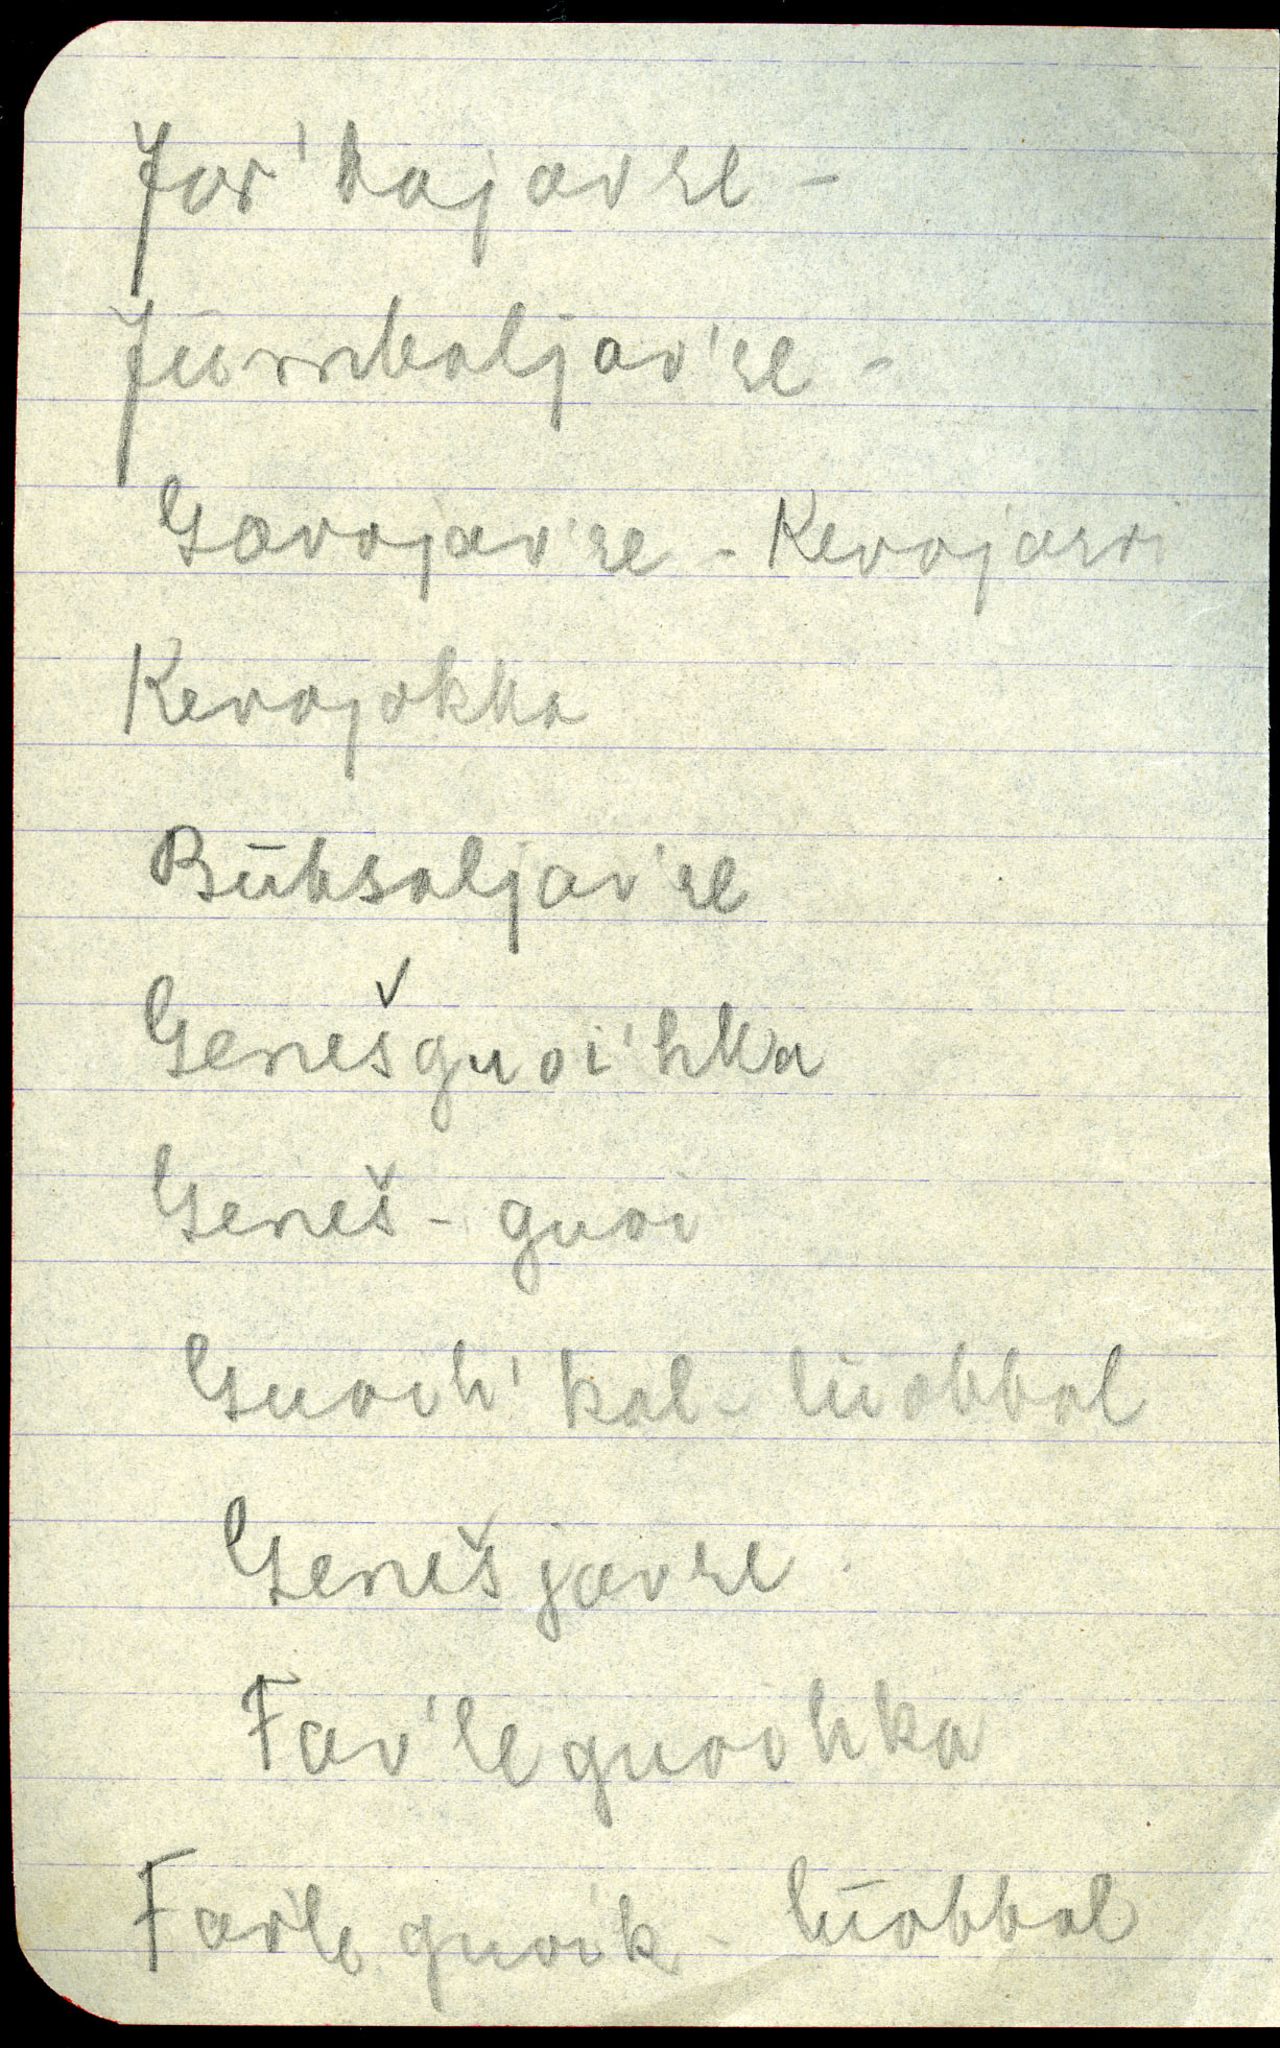 Jor'kajavre -
Jūrmbaljav're -
Gævojav're - Kevojarvi
Kevojokka
Būksaljav're
Genešguoi'hka
Geneš - guoi
Guoih'kal - lūobbal
Genešjavre
Fav'leguoihka
Favle guoik - lūobbal